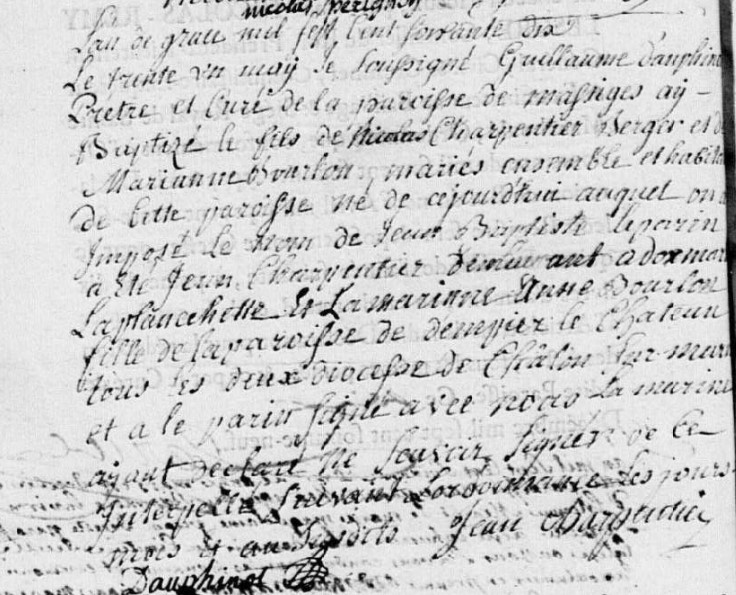 nicolas Perignon
Lan de grace mil sept Cent soixante dix
Le trente un maÿ Je soussigné Guillaume dauphinet
Pretre et Curé de la paroisse de massiges aÿ -
Baptizé le fils de Nicolas Charpentier Berger et de
Marianne Bourlon mariés ensemble et habitan
de cette paroisse né de cejourdhui auquel on a
Imposé le Nom de Jean Baptiste le parin
a Eté Jean Charpentier demeurant a
Laplanchette Et La marinne Anne Bourlon
fille de la paroisse de dempier le Chateau
tous les deux diocesse de Châlon sur marn
et a le parin signé avec nous La marine
aÿant declaré Ne scavoir signer de ce
Interpellé suivant Lordonnance les jours
mois et an susdits Jean Charpentier
Dauphinet